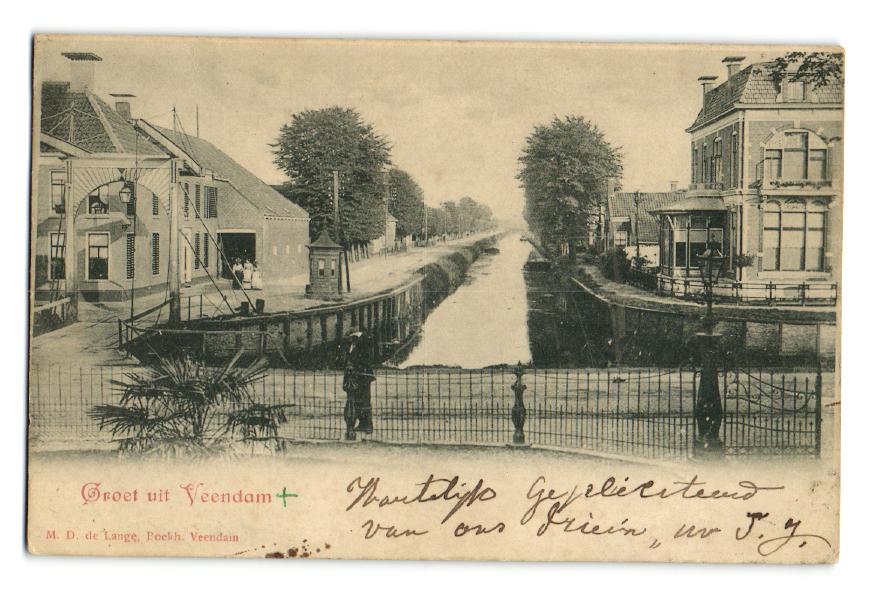 Groet uit Veendam +
M. D. de Lange, Boekh. Veendam
Hartelijk Gefeliciteerd
van ons drieën